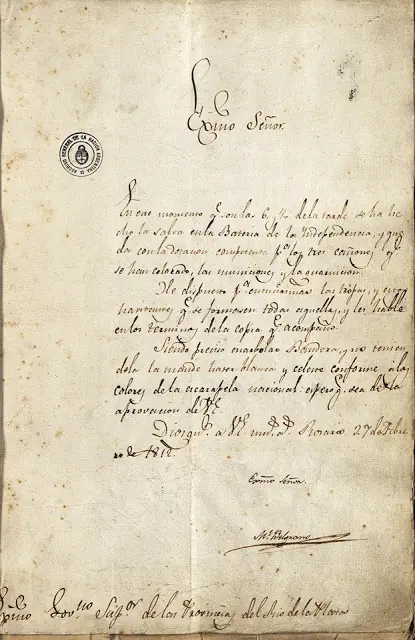 Exmo Señor.
ARCHIVO GENERAL DE LA NACION ARGENTINA
En este momento q.e son las 6 ½ de la tarde se ha he
cho la salva en la Bateria de la Independencia, y que
da con la dotacion competente p.a los tres cañones q.e
se han colocado, las municiones y la guarnicion.
He dispuesto p.a entusiasmar las tropas, y estos
havitantes, q.e se formasen todas aquellas, y les hablé
en los terminos de la copia q.e acompaño.
Siendo preciso enarbolar Bandera, y no tenien
dola la mandé hacer blanca y celeste conforme á los
colores de la escarapela nacional: espero q.e sea de la
aprovacion de V.E.
Dios gu.e a V.E. m.s a.s Rosario 27 de Febre
ro de 1812.
Exmo Señor.
M.l Belgrano
Exmo Gov.no Sup.or de las Provincias del Rio de la Plata